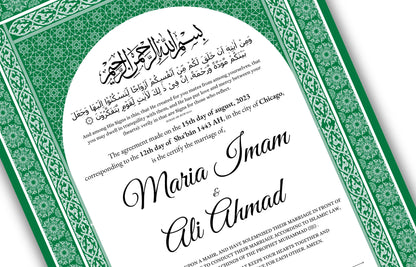 بسم الله الرحمن الرحيم
وَمِنْ آيَاتِهِ أَنْ خَلَقَ لَكُم مِّنْ أَنفُسِكُمْ أَزْوَاجًا لِّتَسْكُنُوا إِلَيْهَا وَجَعَلَ
بَيْنَكُم مَّوَدَّةً وَرَحْمَةً إِنَّ فِي ذَٰلِكَ لَآيَاتٍ لِّقَوْمٍ يَتَفَكَّرُونَ
And among His Signs is this, that He created for you mates from among yourselves, that
you may dwell in tranquility with them, and He has put love and mercy between your
(hearts): verily in that are Signs for those who reflect.
The agreement made on the 15th day of august, 2023
corresponding to the 12th day of Sha'bān 1443 AH, in the city of Chicago,
is the certify the marriage of,
Maria Imam
&
Ali Ahmad
UPON A MAHR, AND HAVE SOLEMNISED THEIR MARRIAGE IN FRONT OF
TO CONDUCT THEIR MARRIAGE ACCORDING TO ISLAMIC LAW,
OF PROPHET MUHAMMAD
KEEPS YOUR HEARTS TOGETHER AND
FOR EACH OTHER. AMEEN.